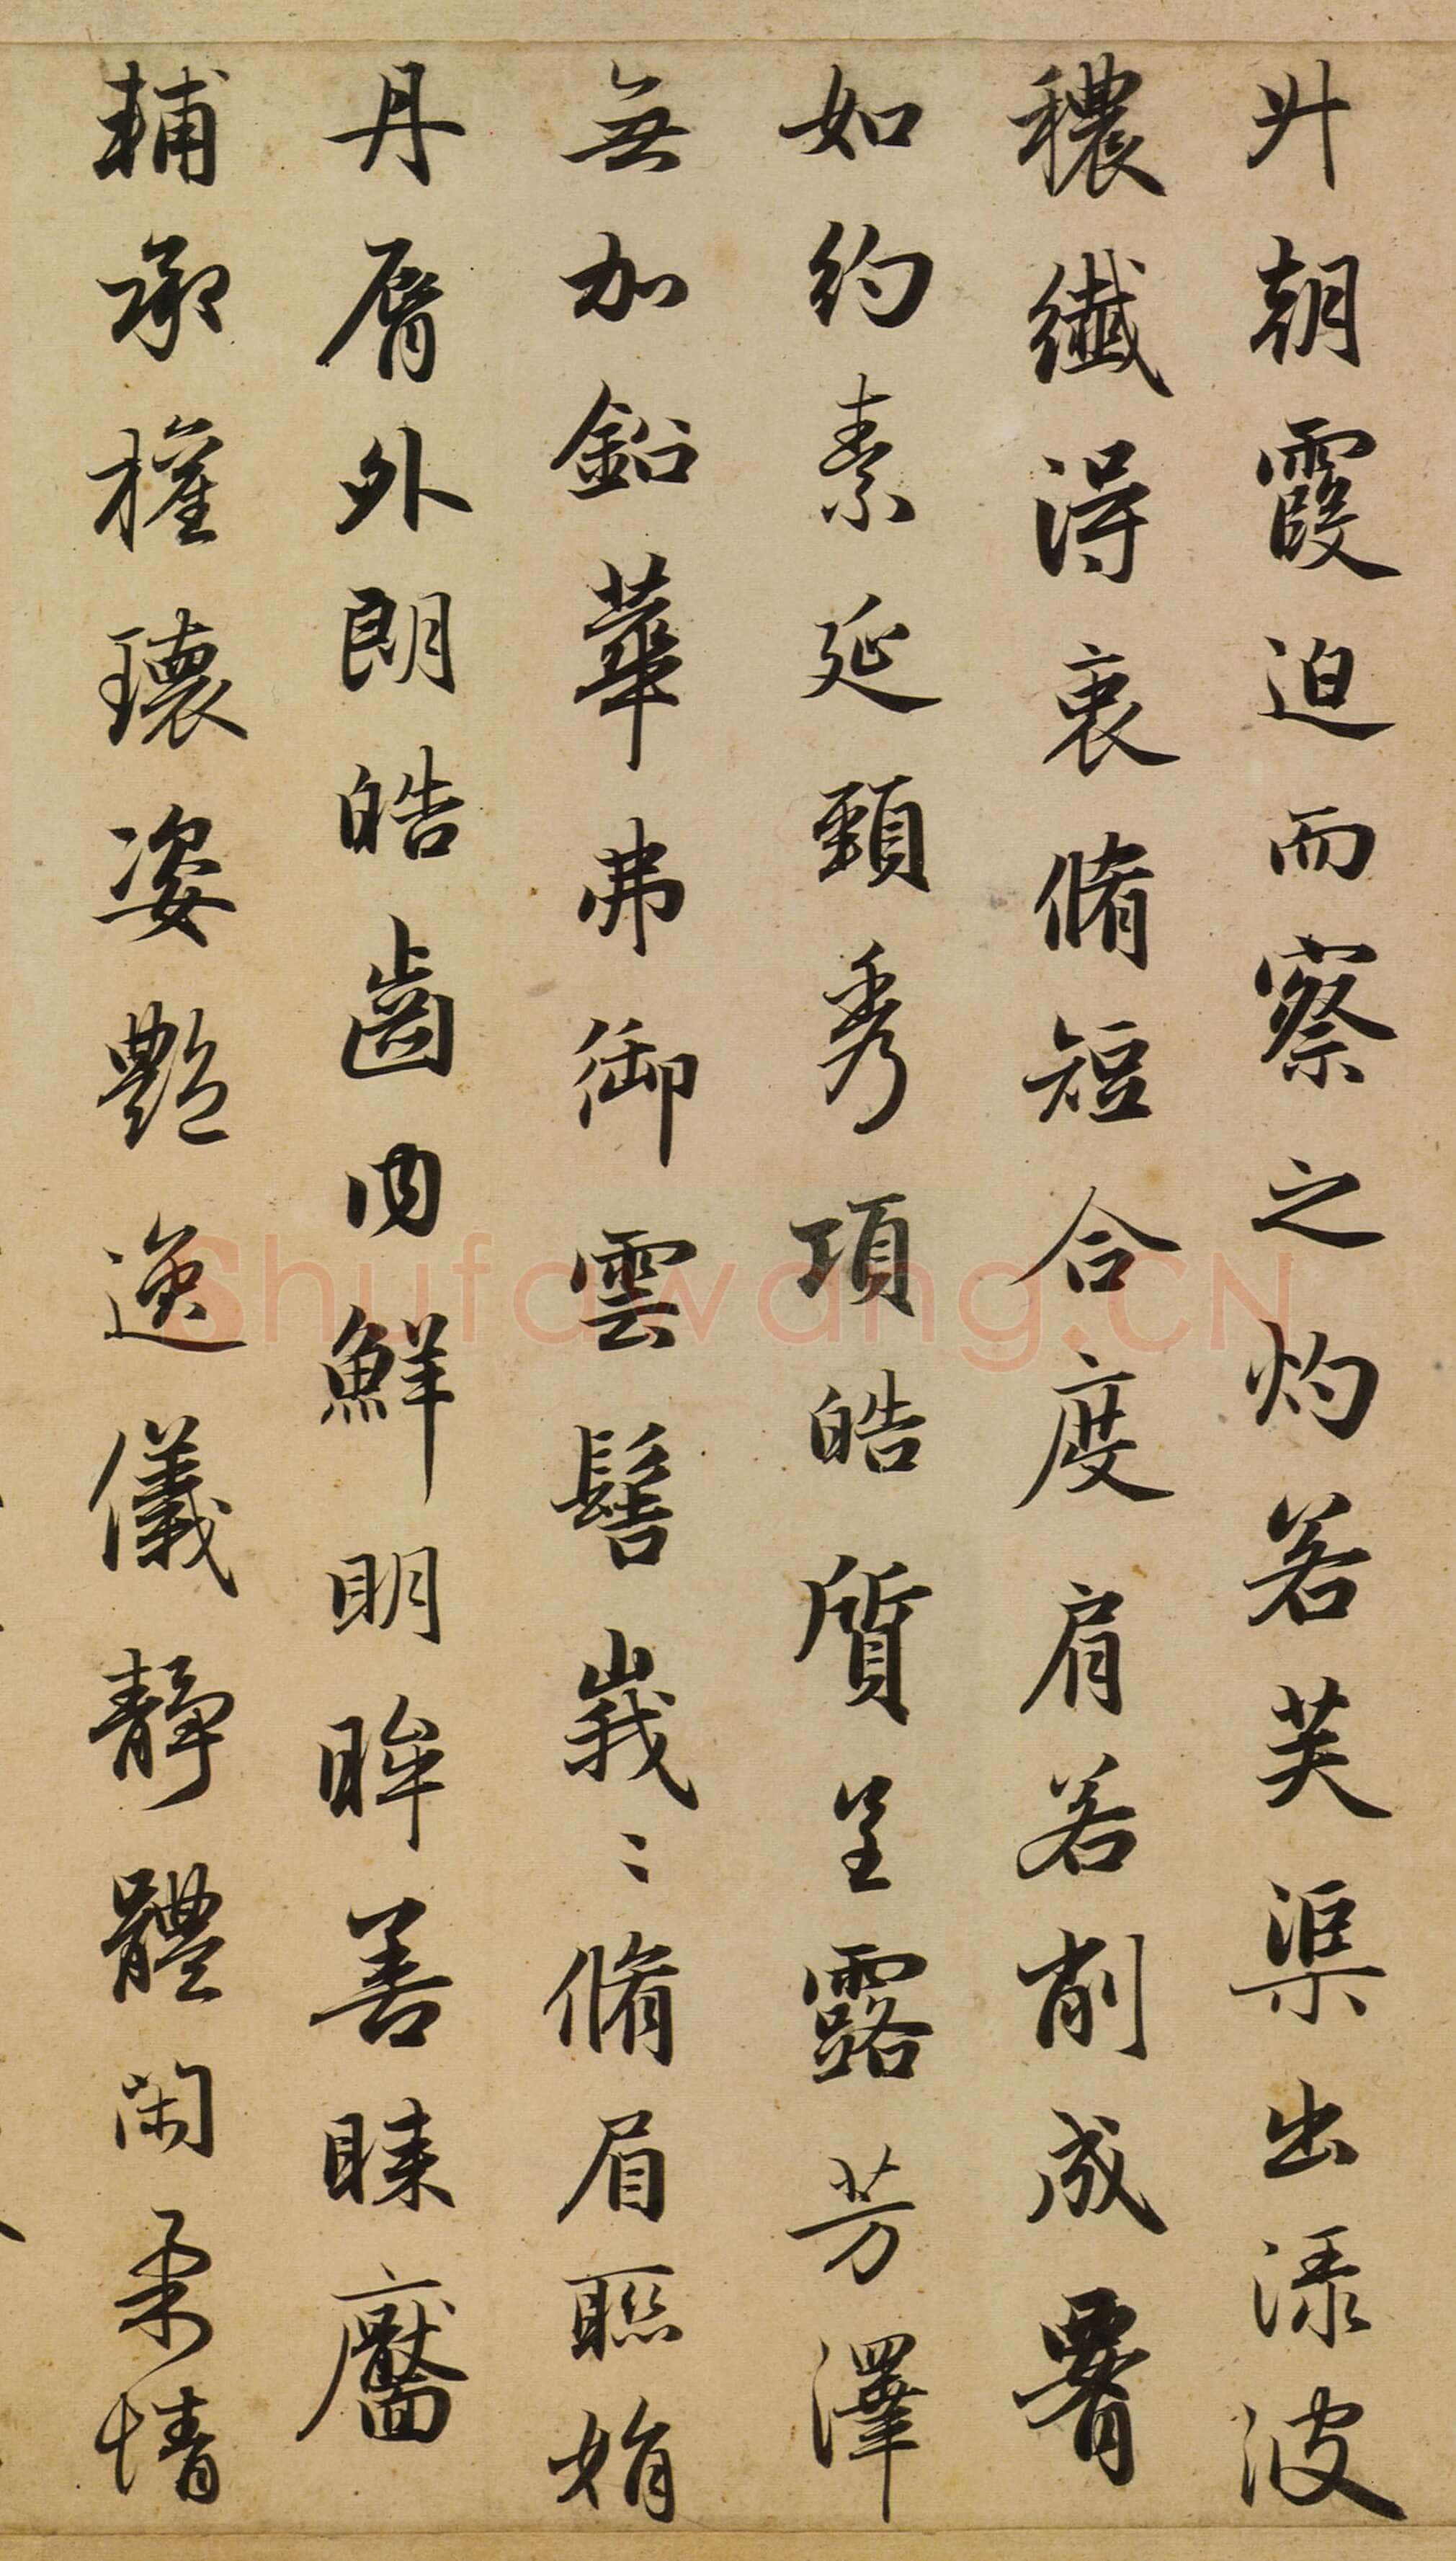 升朝霞迫而察之灼若芙渠出淥波
穠纖得衷脩短合度肩若削成署
如約素延頸秀項皓質呈露芳澤
無加鉛華弗御雲髻峩〻脩眉聯娟
丹脣外朗皓齒内鮮明眸善睞靨
輔承權瓌姿艷逸儀靜體閑柔情
Shufawang.CN